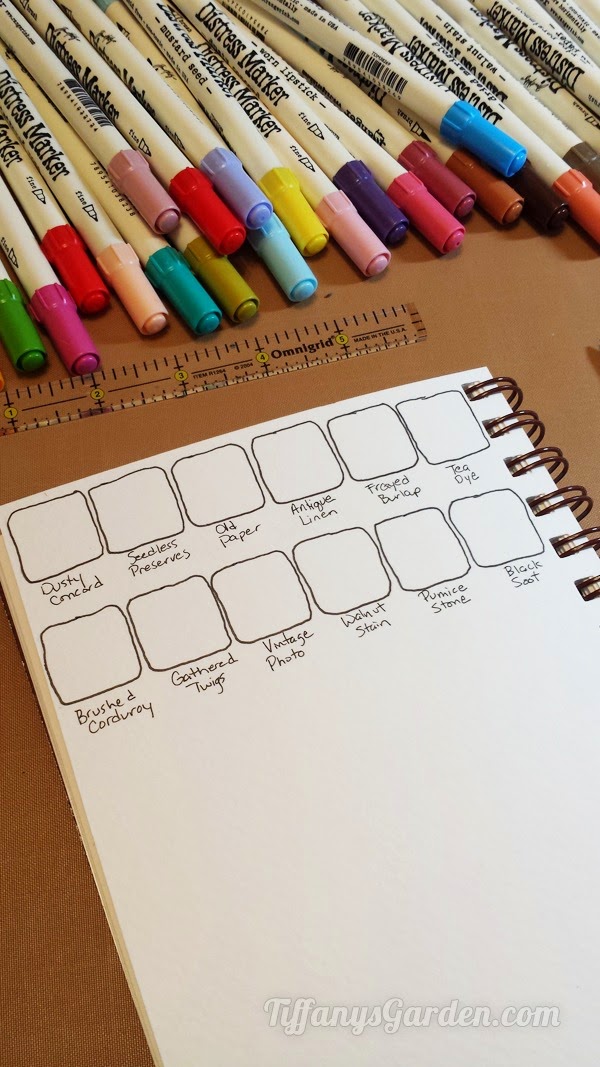 Distress Marker
Distress Marker
Distress Marker
mustard seed
Distress Marker
worn lipstick
Distress Marker
fine
fine
fine
1 2 3 4 5
ITEM R1264 © 2004
Omnigrid®
MADE IN THE U.S.A.
Dusty
Concord
Seedless
Preserves
Old
Paper
Antique
Linen
Frayed
Burlap
Tea
Dye
Brushed
Corduroy
Gathered
Twigs
Vintage
Photo
Walnut
Stain
Pumice
Stone
Black
Soot
TiffanysGarden.com